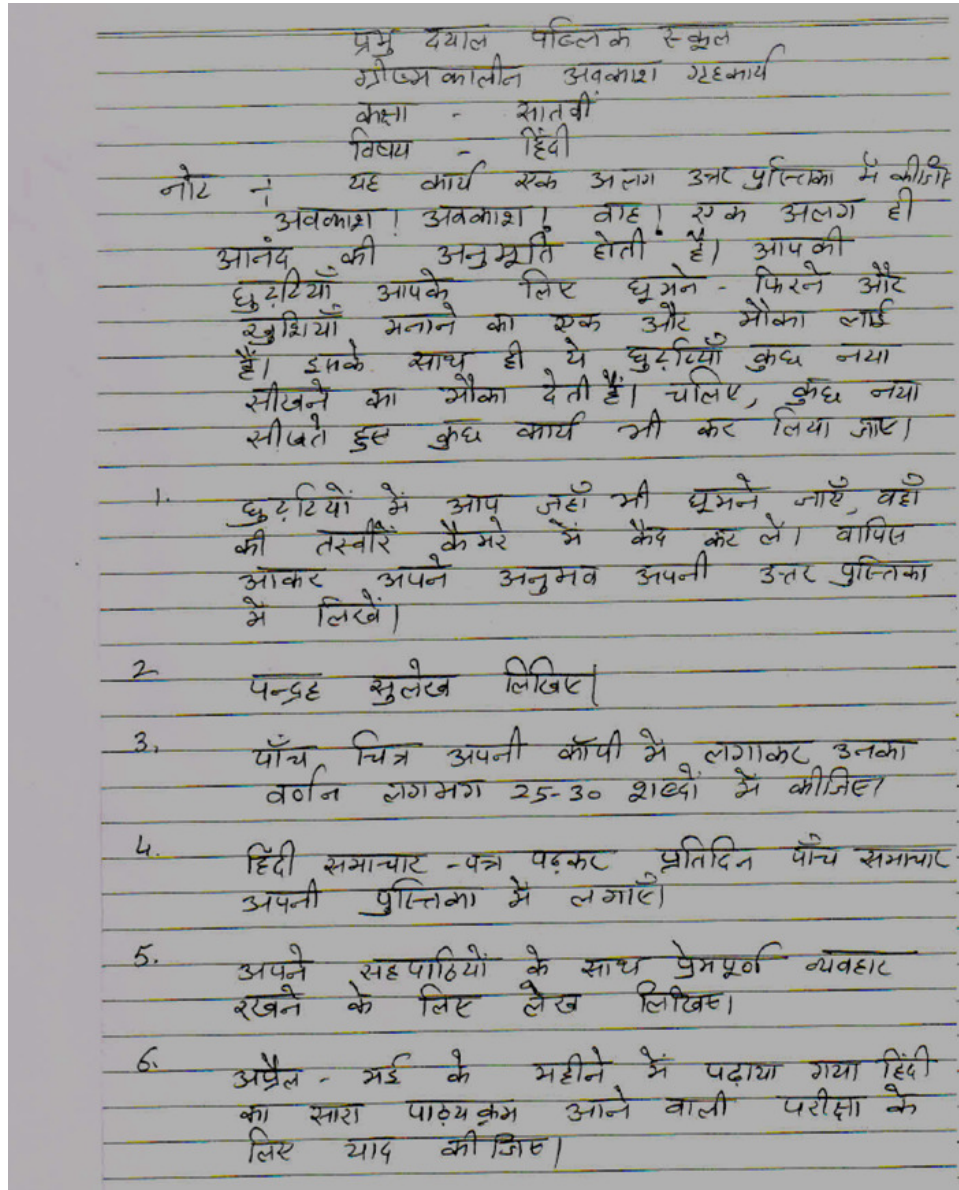 प्रभु दयाल पब्लिक स्कूल
ग्रीष्मकालीन अवकाश गृहकार्य
कक्षा - सातवीं
विषय - हिंदी
नोट -: यह कार्य एक अलग उत्तर पुस्तिका में कीजिए
अवकाश! अवकाश! वाह! एक अलग ही
आनंद की अनुभूति होती है। आपकी
छुट्टियाँ आपके लिए घूमने - फिरने और
खुशियाँ मनाने का एक और मौका लाई
हैं। इसके साथ ही ये छुट्टियाँ कुछ नया
सीखने का मौका देती हैं। चलिए, कुछ नया
सीखते हुए कुछ कार्य भी कर लिया जाए।
1. छुट्टियों में आप जहाँ भी घूमने जाएँ, वहाँ
की तस्वीरें कैमरे में कैद कर लें। वापिस
आकर अपने अनुभव अपनी उत्तर पुस्तिका
में लिखें।
2 पन्द्रह सुलेख लिखिए।
3. पाँच चित्र अपनी कॉपी में लगाकर उनका
वर्णन लगभग 25-30 शब्दों में कीजिए।
4. हिंदी समाचार - पत्र पढ़कर प्रतिदिन पाँच समाचार
अपनी पुस्तिका में लगाएँ।
5. अपने सहपाठियों के साथ प्रेमपूर्ण व्यवहार
रखने के लिए लेख लिखिए।
6. अप्रैल - मई के महीने में पढ़ाया गया हिंदी
का सारा पाठ्यक्रम आने वाली परीक्षा के
लिए याद कीजिए।